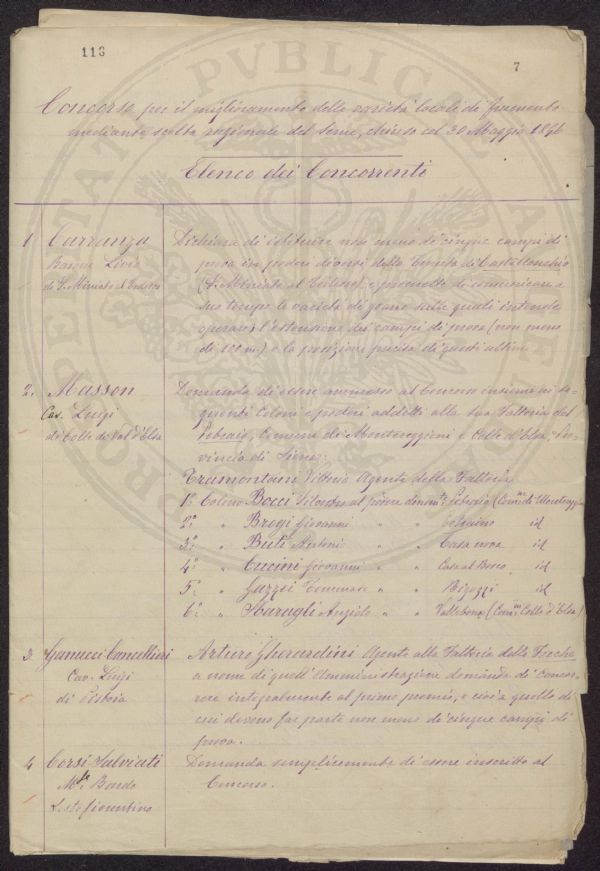 113
7
Concorso per il miglioramento delle varietà locali di frumento
mediante scelta razionale del seme, chiuso col 30 Maggio 1896
Elenco dei Concorrenti
1 Carranza
Barone Livio
di S. Miniato al Tedesco
Dichiara di istituire non meno di cinque campi di
prova in poderi diversi della Tenuta di Castellonchio
(S. Miniato al Tedesco) e promette di comunicare a
suo tempo le varietà di grano sulle quali intende
operare, l'estensione dei campi di prova (non meno
di m) e la posizione precisa di questi ultimi
2. Masson
Cav. Luigi
di Colle di Val d'Elsa
Domanda di essere ammesso al Concorso insieme ai se-
guenti Coloni e poderi addetti alla sua Fattoria del
Comune di Monteriggioni e Colle d'Elsa, Pro-
vincia di Siena:
Tramontani Vittorio Agente della Fattoria
1º Colono Bocci al podere denom.to Petraio (Com.ne di Monteriggioni)
2º " Brogi Giovanni " "  id
3º " Buti Antonio " " Casa nova id
4º " Cucini Giovanni " " Casa al Bosco id
5º " Gazzei Tommaso " " Bigozzi id
6º " Sbaragli Angiolo " " Vallebona (Com.ne Colle d'Elsa)
3 Ganucci Cancellieri
Cav. Luigi
di Pistoia
Arturo Gherardini Agente alla Fattoria della
a nome di quell'Amministrazione domanda di concor-
rere integralmente al primo premio, e cioè a quello di
cui devono far parte non meno di cinque campi di
prova.
4 Corsi Salviati
M.se Bardo
Sesto fiorentino
Domanda semplicemente di essere inscritto al
Concorso.
PUBLICA